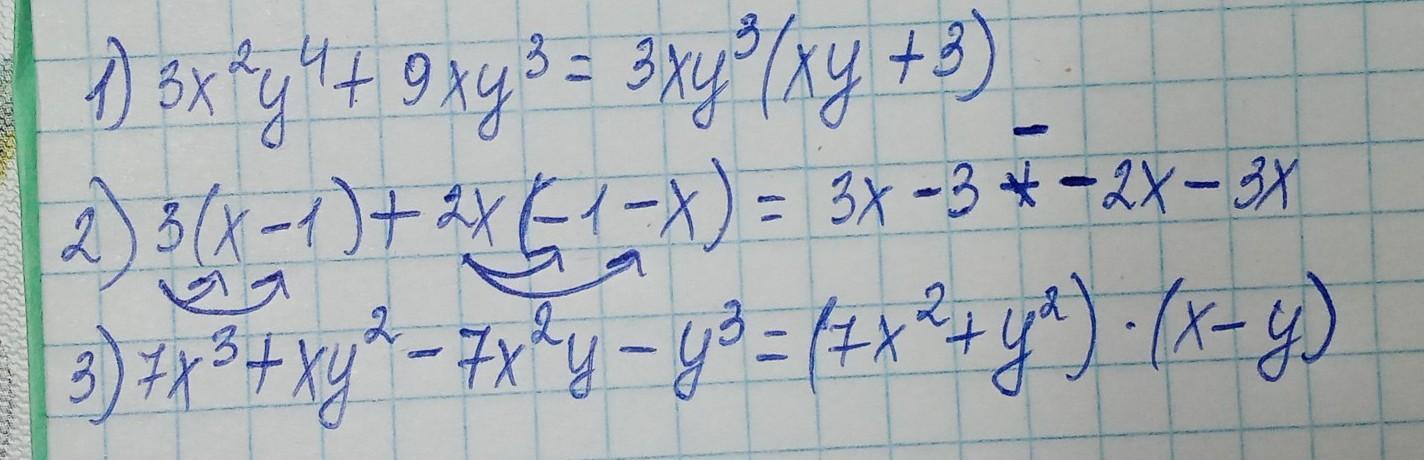 1) 3x²y⁴ + 9xy³ = 3xy³(xy + 3)
2) 3(x - 1) + 2x(-1 - x) = 3x - 3 - 2x - 3x
3) 7x³ + xy² - 7x²y - y³ = (7x² + y²) · (x - y)